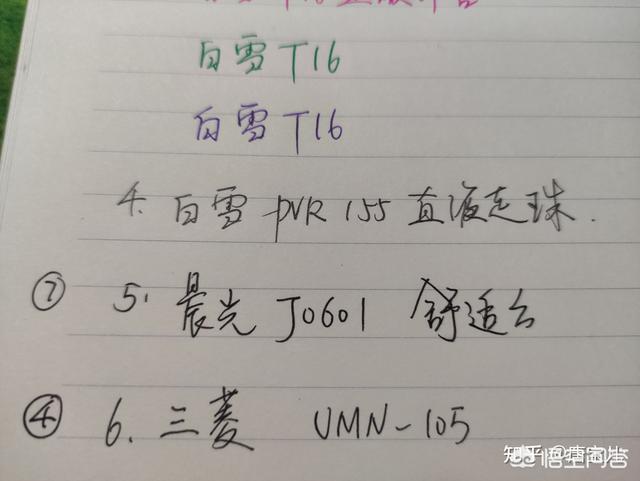 白雪T16
白雪T16
4. 白雪 PVR 155 直液走珠.
⑦ 5. 晨光 J0601 舒适云
④ 6. 三菱 UMN-105
知乎
悟空问答